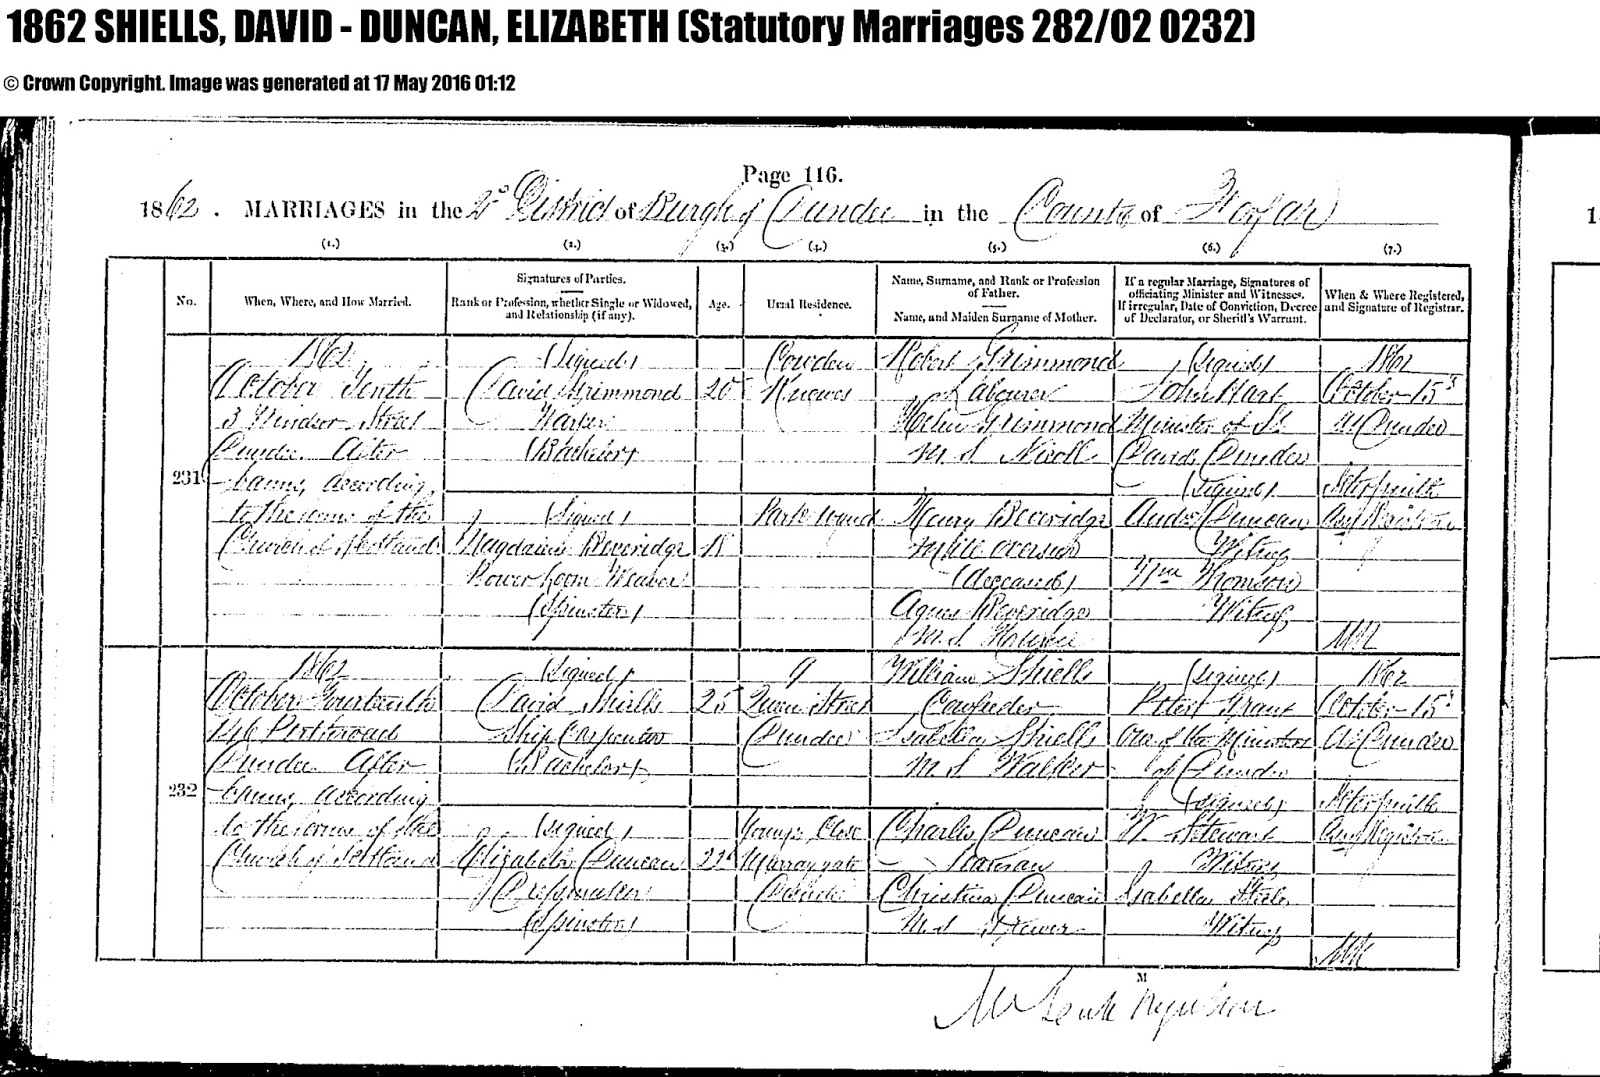 1862 SHIELLS, DAVID - DUNCAN, ELIZABETH (Statutory Marriages 282/02 0232)
© Crown Copyright. Image was generated at 17 May 2016 01:12
Page 116.
1862. MARRIAGES in the 2d District of Burgh of Dundee in the County of Forfar
(1.) (2.) (3.) (4.) (5.) (6.) (7.)
No.
When, Where, and How Married.
Signatures of Parties.
Rank or Profession, whether Single or Widowed,
and Relationship (if any).
Age.
Usual Residence.
Name, Surname, and Rank or Profession
of Father.
Name, and Maiden Surname of Mother.
If a regular Marriage, Signatures of
officiating Minister and Witnesses.
If irregular, Date of Conviction, Decree
of Declarator, or Sheriff's Warrant.
When & Where Registered,
and Signature of Registrar.
231
1862
October Tenth
3 Windsor Street
Dundee After
banns, according
to the forms of the
Church of Scotland
(Signed)
David Grimmond
(Bachelor)
20
Cowden
Knowes
Robert Grimmond
Labourer
Helen Grimmond
M.S. Nicoll
(Signed)
John Hart
Minister of St
Davids Dundee
(Signed)
Andw Duncan
Witness
Wm Thomson
Witness
1862
October 15
At Dundee
Asst Registrar
(Signed)
Magdalene Beveridge
Power Loom Weaver
(Spinster)
18
Park Wynd
Henry Beveridge
(deceased)
Agnes Beveridge
M.S.
232
1862
October Fourteenth
146 Perth road
Dundee After
banns, according
to the forms of the
Church of Scotland
(Signed)
David Shiells
Ship Carpenter
(Bachelor)
25
9
Queen Street
Dundee
William Shiells
Cowfeeder
Isabella Shiells
M.S. Walker
(Signed)
Peter Grant
One of the Ministers
of Dundee
(Signed)
W. Stewart
Witness
Isabella Steele
Witness
1862
October 15
At Dundee
Asst Registrar
(Signed)
Elizabeth Duncan
(Spinster)
22
Youngs Close
Murraygate
Dundee
Charles Duncan
Seaman
Christina Duncan
M.S.
M
Registrar